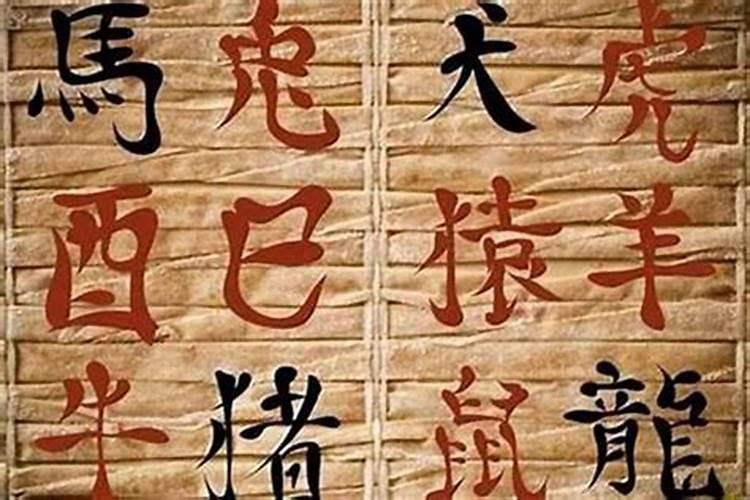 馬 兎 犬 虎
酉 巳 猿 羊
牛 猪 鼠 龍